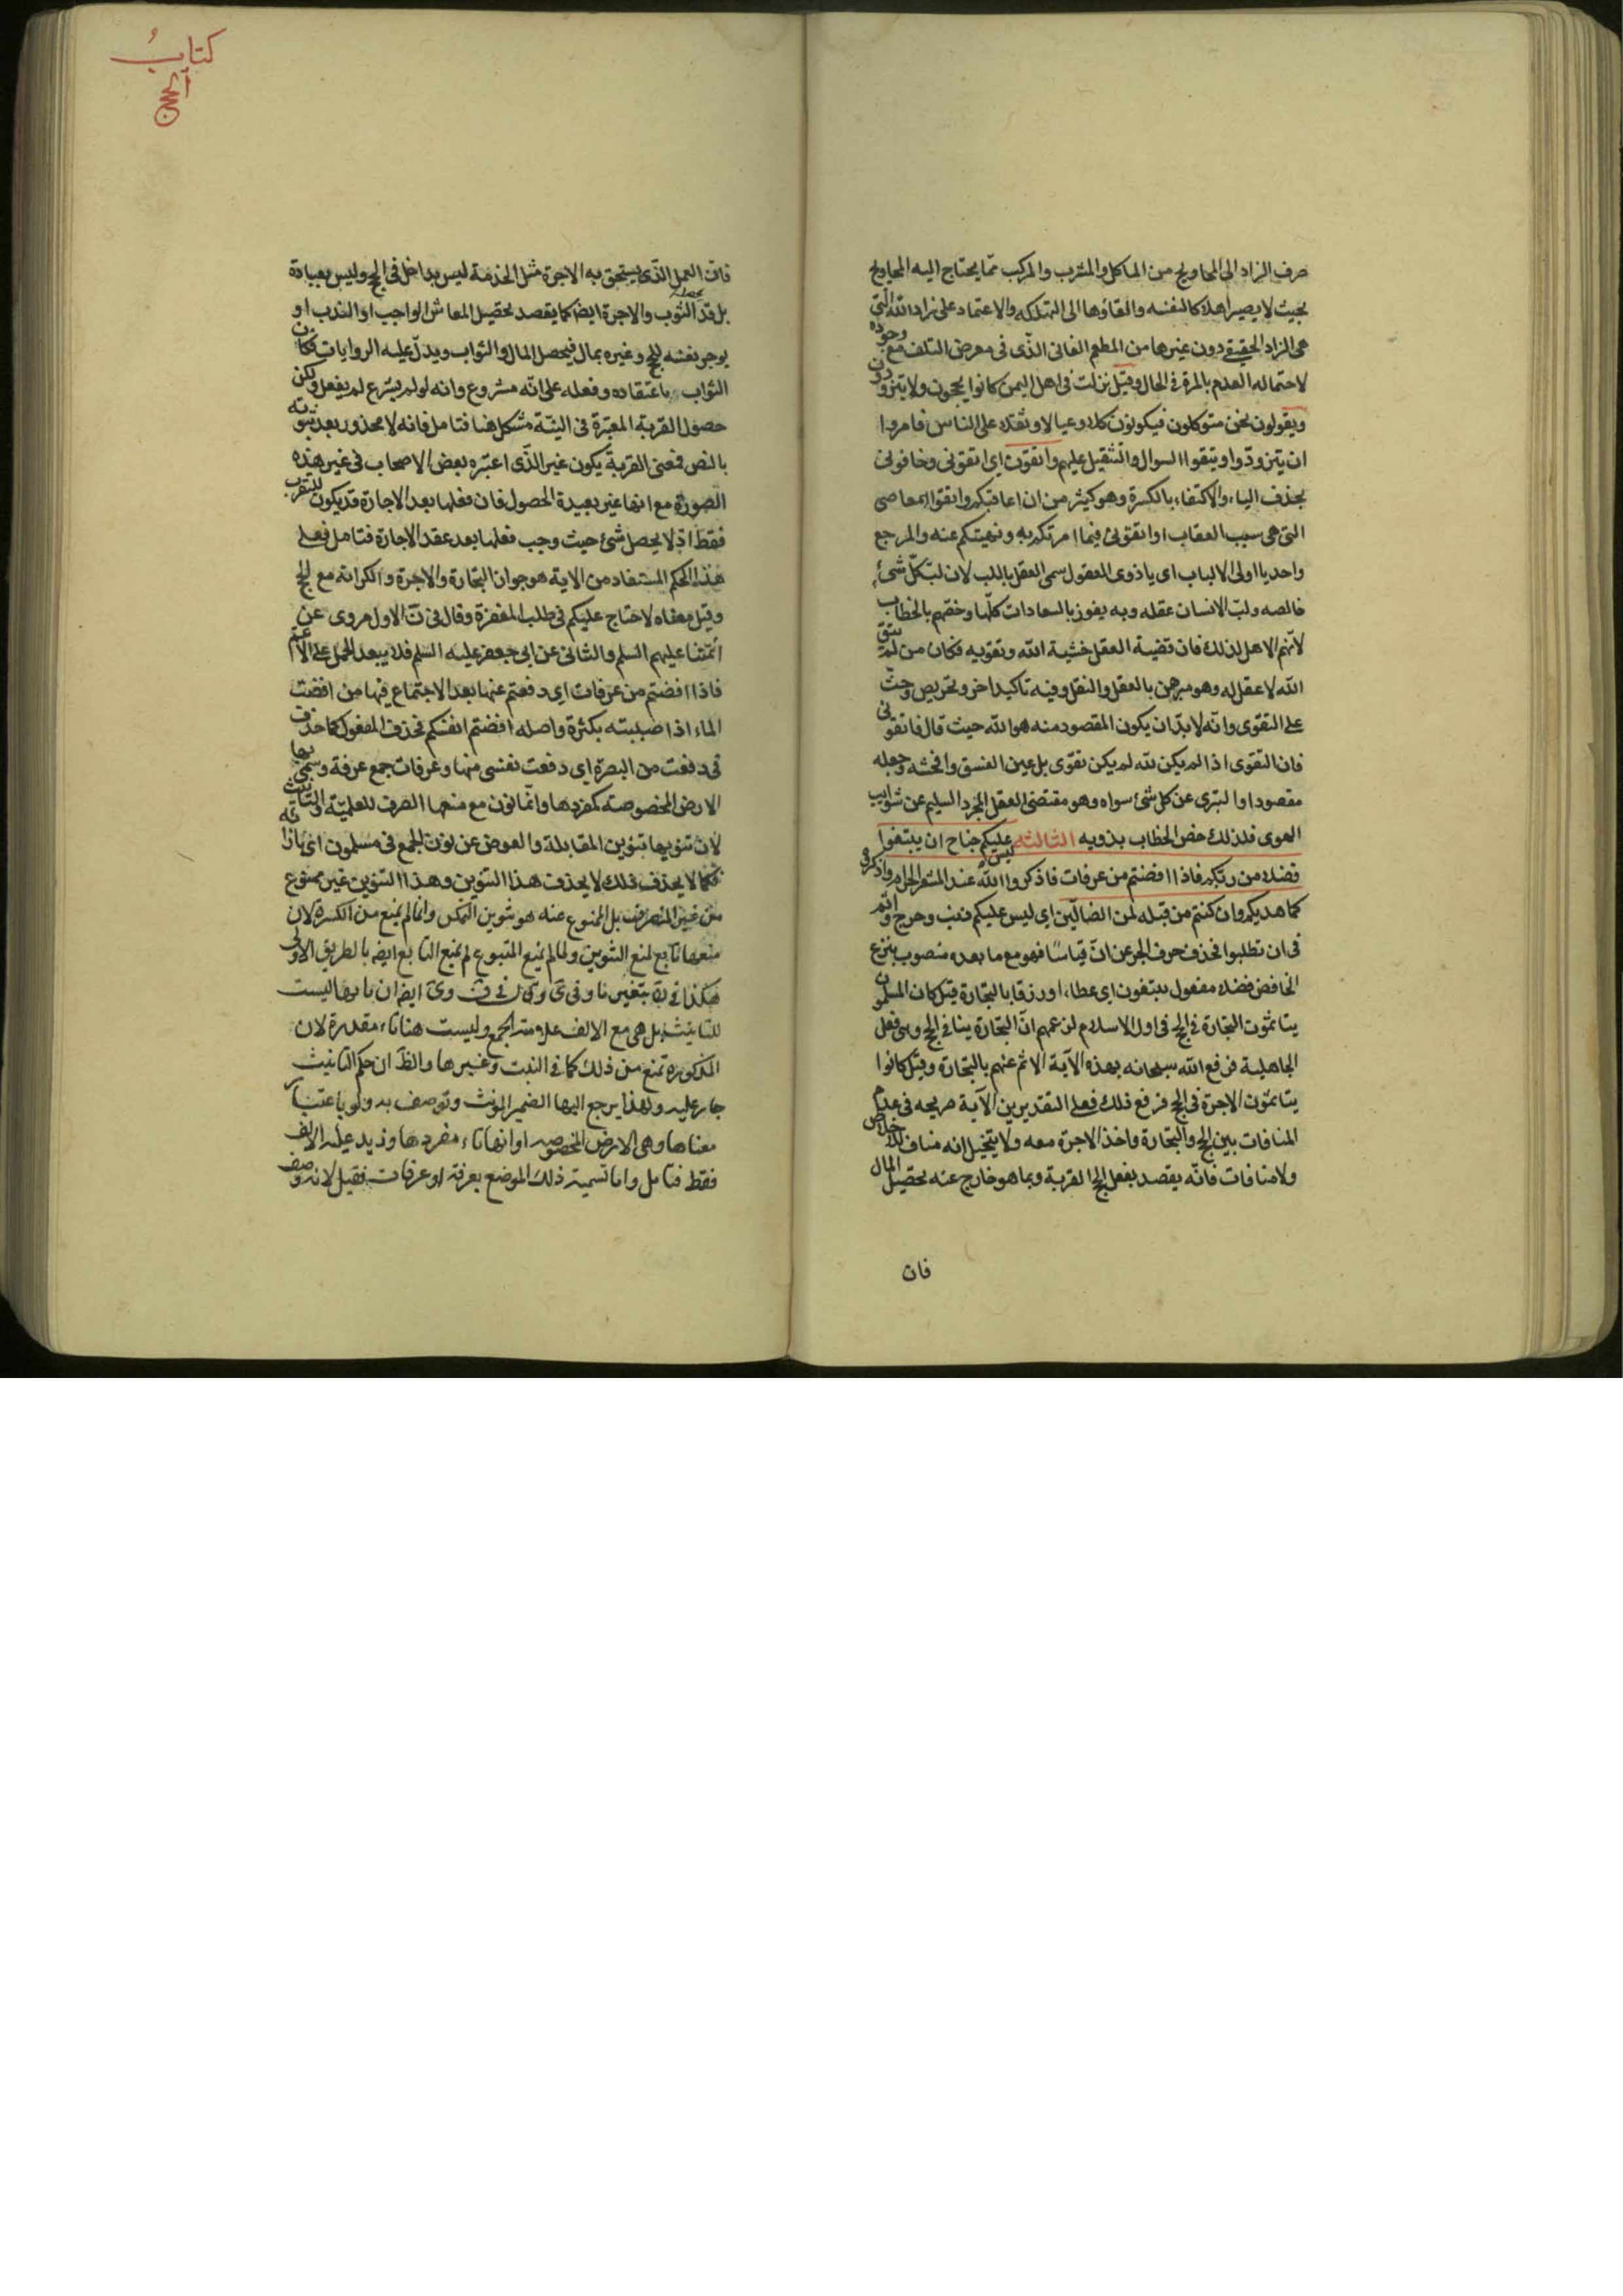 صرف الزاد الى المحاويج من الماكل والمشرب والمركب مما يحتاج اليه المحاويج
بحيث لا يصير اهلاكا لنفسه والقاؤها الى التهلكه والاعتماد على زاد الله التى
هى الزاد الحقيقى دون غيرها من المطعم الفانى الذى فى معرض التلف مع وجوده
لاحتماله العدم بالمرة فى الحال وقيل نزلت فى اهل اليمن كانوا يحجون ولا يتزودون
ويقولون نحن متوكلون فيكونون كلا وعيالا وثقلا على الناس فامروا
ان يتزودوا ويتقوا السوال والتثقيل عليهم واتقون اى اتقونى وخافونى
بحذف الياء والاكتفاء بالكسرة وهو كثير من ان اعاقبكم واتقوا المعاصى
التى هى سبب العقاب او اتقونى فيما امرتكم به ونهيتكم عنه والمرجع
واحد يا اولى الالباب اى يا ذوى العقول سمى العقل باللب لان لب كل شئ
خالصه ولب الانسان عقله وبه يفوز بالسعادات كلها وخصهم بالخطاب
لانهم الاهل لذلك فان قضية العقل خشية الله وتقويه فكان من لم يتق
الله لا عقل له وهو مبرهن بالعقل والنقل وفيه تاكيد اخر وتحريص وحث
على التقوى وانه لا بد ان يكون المقصود منه هو الله حيث قال فاتقونى
فان التقوى اذا لم يكن لله لم يكن تقوى بل عين الفسق وافحشه وجعله
مقصودا والتبرى عن كل شئ سواه وهو مقتضى العقل المجرد السليم عن شوايب
الهوى فلذلك خص الخطاب بذويه الثالثة ليس عليكم جناح ان يبتغوا
فضلا من ربكم فاذا افضتم من عرفات فاذكروا الله عند المشعر الحرام واذكروه
كما هديكم وان كنتم من قبله لمن الضالين اى ليس عليكم ذنب وحرج واثم
فى ان تطلبوا فحذف حرف الجر عن ان قياسا فهو مع ما بعده منصوب بنزع
الخافض فضلا مفعول تبتغون اى عطاء او رزقا بالتجارة قيل كان المسلمون
يتاثمون التجارة فى الحج فى اول الاسلام لزعمهم ان التجارة ينافى الحج وهى فعل
الجاهلية فرفع الله سبحانه بهذه الآية الاثم عنهم بالتجارة وقيل كانوا
يتاثمون الاجرة فى الحج فرفع ذلك فعلى التقديرين الآية صريحه فى عدم
المنافات بين الحج والتجارة واخذ الاجرة معه ولا يتخيل انه مناف للاخلاص
ولا منافات فانه يقصد بفعل الحج القربة وبما هو خارج عنه تحصيل المال
فان
كتاب
الحج
فان العمل الذى يستحق به الاجرة مثل الخدمة ليس بداخل فى الحج وليس بعبادة
بل قد الثوب والاجرة ايضا كما يقصد تحصيل المعاش الواجب او الندب او
يوجر نفسه للحج وغيره بمال فيحصل المال والثواب ويدل عليه الروايات فكان
الثواب باعتقاده وفعله على انه مشروع وانه لو لم يشرع لم يفعل ولكن
حصول القربة المعتبرة فى النية مشكل هنا فتامل فانه لا محذور بعد ثبوته
بالنص فمعنى القربة يكون غير الذى اعتبره بعض الاصحاب فى غير هذه
الصورة مع انها غير بعيدة الحصول فان فعلها بعد الاجارة قد يكون للتقرب
فقط اذ لا يحصل شئ حيث وجب فعلها بعد عقد الاجارة فتامل فعلى
هذا الحكم المستفاد من الاية هو جواز التجارة والاجرة والكرائة مع الحج
وقيل معناه لا جناح عليكم فى طلب المغفرة وقال فى ن الاول مروى عن
ائمتنا عليهم السلم والثانى عن ابى جعفر عليه السلم فلا يبعد الحمل على الاعم
فاذا افضتم من عرفات اى دفعتم عنها بعد الاجتماع فيها من افضت
الماء اذا صببته بكثرة واصله افضتم انفسكم فحذف المفعول كما حذف
فى دفعت من البصرة اى دفعت نفسى منها وعرفات جمع عرفة وسمى بها
الارض المخصوصة كمفردها وانما نون مع منعها الصرف للعلمية والتانيث
لان تنوينها تنوين المقابلة والعوض عن نون الجمع فى مسلمون اى بازائه
فكما لا يحذف ذلك لا يحذف هذا التنوين وهذا التنوين غير ممنوع
من غير المنصرف بل الممنوع عنه هو تنوين التمكن وانما لم يمنع من الكسرة لان
منعها تابع لمنع التنوين ولما لم يمنع المتبوع لم يمنع التابع ايضا بالطريق الاولى
هكذا فى بتغيير ما وفى ى وفى ف وى ايضا ان تاءها ليست
للتانيث بل هى مع الالف علامة الجمع وليست هنا تاء مقدرة لان
المذكورة تمنع من ذلك كما فى البنت وغيرها والظ ان حكم التانيث
جار عليه ولهذا يرجع اليها الضمير المونث وتوصف به ولو باعتبار
معناها وهى الارض المخصوصه او انها تاء مفردها وزيد عليه الالف
فقط فتامل واما تسمية ذلك الموضع بعرفة او عرفات فقيل لانه وصف